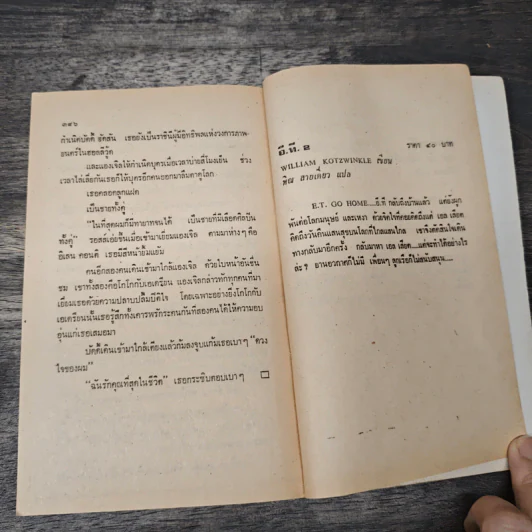 ๓๔๖
กำเนิดบัดดี้ ฮัดสัน เธอยังเป็นราชินีผู้มีอิทธิพลแห่งวงการภาพ-
ยนตร์ในฮอลลีวู้ด
และแองเจิลให้กำเนิดบุตรเมื่อเวลาบ่ายสี่โมงเย็น ช่วง
เวลาไล่เลี่ยกันเธอก็ให้บุตรอีกคนออกมาลืมตาดูโลก
เธอคลอดลูกแฝด
เป็นชายทั้งคู่
"ในที่สุดผมก็มีทายาทจนได้ เป็นชายที่มีเลือดศิลปิน
ทั้งคู่" รอสส์เอ่ยขึ้นเมื่อเข้ามาเยี่ยมแองเจิล ตามมาห่าง ๆ คือ
อีเลน คอนติ เธอมีสีหน้ายิ้มแย้ม
คนอีกสองคนเดินเข้ามาใกล้แองเจิล ด้วยใบหน้าอันชื่น
ชม เขาทั้งสองคือโกโก้กับเอเดรียน แองเจิลกล่าวทักทุกคนที่มา
เยี่ยมเธอด้วยความปลาบปลื้มปิติใจ โดยเฉพาะอย่างยิ่งโกโก้กับ
เอเดรียนนั้นเธอรู้สึกทั้งเคารพรักระคนกันที่สองคนได้ให้ความอบ
อุ่นแก่เธอเสมอมา
บัดดี้เดินเข้ามาใกล้เตียงแล้วก้มลงจูบแก้มเธอเบา ๆ "ดวง
ใจของผม"
"ฉันรักคุณที่สุดในชีวิต" เธอกระซิบตอบเบา ๆ
อี.ที. ๒
ราคา ๔๐ บาท
WILLIAM KOTZWINKLE เขียน
แปล
E.T. GO HOME.....อี.ที กลับถึงบ้านแล้ว แต่ยังผูก
พันต่อโลกมนุษย์ และเหงา หัวใจไหยอดคิดถึงแต่ เอลเลียต
คิดถึงวันคืนแสนสุขบนโลกที่ไกลแสนไกล เขาจึงตัดสินใจเดิน
ทางกลับมาอีกครั้ง กลับมาหา เอลเลียต.....แต่จะทำได้อย่างไร
ล่ะ ? ยานอวกาศก็ไม่มี เพื่อนๆ ลูกเรือก็ไม่สนับสนุน.....